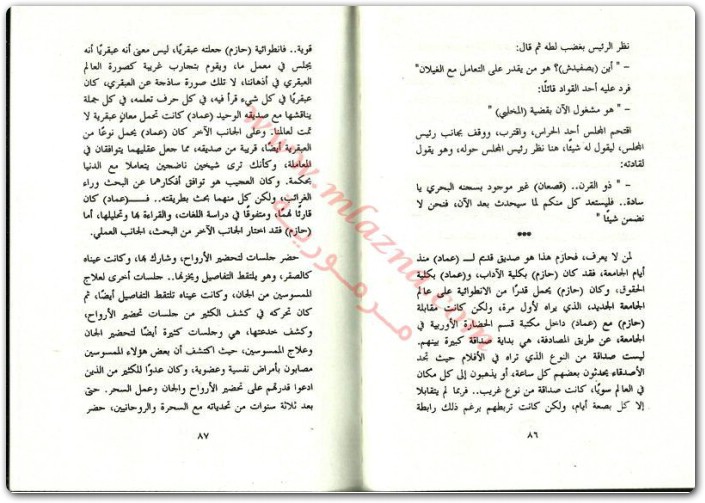 نظر الرئيس بغضب لطه ثم قال:
– " أين (يصفيدش)؟ هو من يقدر على التعامل مع الغيلان"
فرد عليه أحد القواد قائلًا:
– " هو مشغول الآن بقضية (المخلبي) "
اقتحم المجلس أحد الحراس، واقترب، ووقف بجانب رئيس
المجلس، ليقول له شيئًا، هنا نظر رئيس المجلس حوله، وهو يقول
لقادته:
– " ذو القرن.. (قصعان) غير موجود بسجنه البحري يا
سادة.. فليستعد كل منكم لما سيحدث بعد الآن، فنحن لا
نضمن شيئًا "
***
لمن لا يعرف، فحازم هذا هو صديق قديم لـ (عماد) منذ
أيام الجامعة، فقد كان (حازم) بكلية الآداب، و(عماد) بكلية
الحقوق، وكان (حازم) يحمل قدرًا من الانطوائية على عالم
الجامعة الجديد، الذي يراه لأول مرة، ولكن كانت مقابلة
(حازم) مع (عماد) داخل مكتبة قسم الحضارة الأوربية في
الجامعة، عن طريق المصادفة، هي بداية صداقة كبيرة بينهم.
ليست صداقة من النوع الذي تراه في الأفلام حيث تجد
الأصدقاء يحدثون بعضهم كل ساعة، أو يذهبون إلى كل مكان
في العالم سويًا، كانت صداقة من نوع غريب.. فربما لم يتقابلا
إلا كل بضعة أيام، ولكن كانت تربطهم برغم ذلك رابطة
٨٦
قوية.. فانطوائية (حازم) جعلته عبقريًا، ليس معنى أنه عبقريًا أنه
يجلس في معمل ما، ويقوم بتجارب غريبة كصورة العالم
العبقري في أذهاننا، لا تلك صورة ساذجة عن العبقري، كان
عبقريًا في كل شيء قرأ فيه، في كل حرف تعلمه، في كل جملة
يناقشها مع صديقه الوحيد (عماد) كانت تحمل معانٍ عبقرية لا
تمت لعالمنا. وعلى الجانب الآخر كان (عماد) يحمل نوعًا من
العبقرية أيضًا، قريبة من صديقه، مما جعل عقليهما يتوافقان في
المعاملة، وكأنك ترى شيخين ناضجين يتعاملا مع الدنيا
بحكمة. وكان العجيب هو توافق أفكارهما عن البحث وراء
الغرائب، ولكن كل منهما يبحث بطريقته.. فـــ(عماد) كان
قارئًا نهمًا، ومتفوقًا في دراسة اللغات، والقراءة بها وتحليلها، أما
(حازم) فقد اختار الجانب الآخر من البحث، الجانب العملي.
حضر جلسات لتحضير الأرواح، وشارك بها، وكانت عيناه
كالصقر، وهو يلتقط التفاصيل ويخزنها.. جلسات أخرى لعلاج
الممسوسين من الجان، وكانت عيناه تلتقط التفاصيل أيضًا، ثم
كان تحركه في كشف الكثير من جلسات تحضير الأرواح،
وكشف خدعتها، هي وجلسات كثيرة أيضًا لتحضير الجان
وعلاج الممسوسين، حيث اكتشف أن بعض هؤلاء الممسوسين
مصابون بأمراض نفسية وعضوية، وكان عدوًا للكثير من الذين
ادعوا قدرهم على تحضير الأرواح والجان وعمل السحر. حتى
بعد ثلاثة سنوات من تحدياته مع السحرة والروحانيين، حضر
٨٧
www.mlazna.com
مرمورية